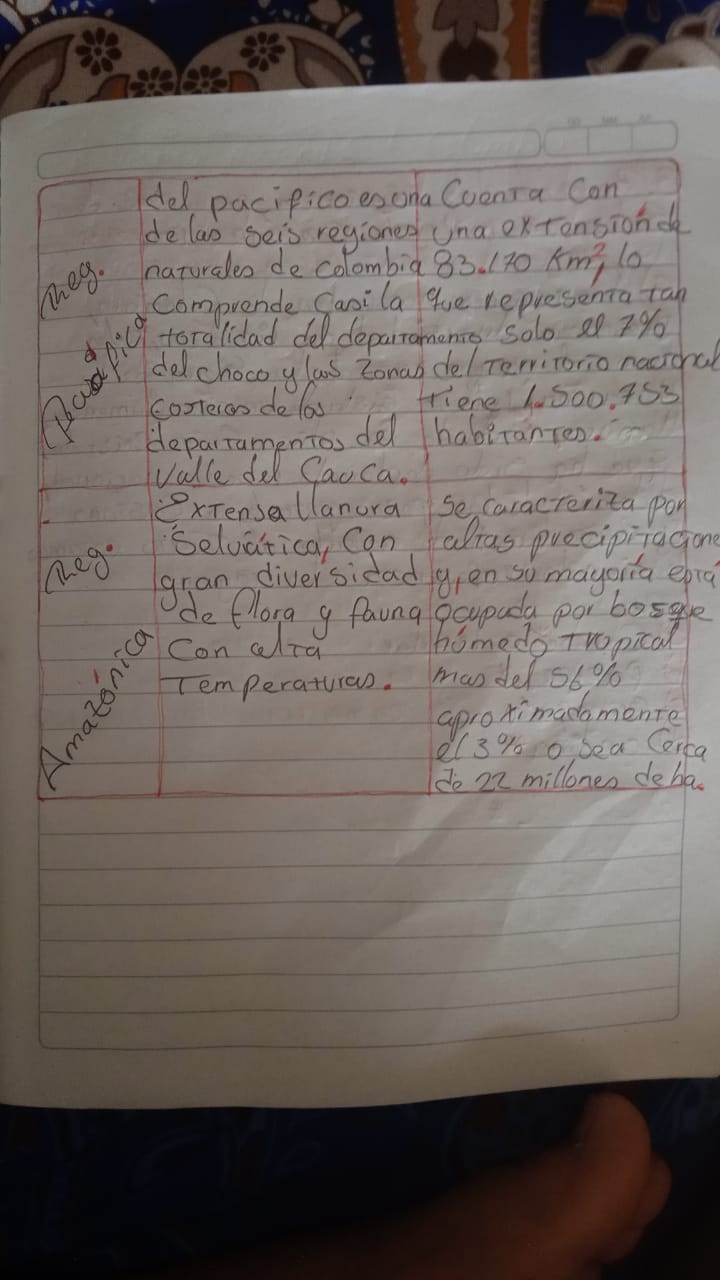 Reg.
Pacífica
del pacifico es una
de las seis regiones
naturales de colombia
Comprende Casi la
totalidad del departamento
del choco y las zonas
costeras de los
departamentos del
Valle del Cauca.
Cuenta Con
una extensión de
83.170 Km², lo
que representa tan
solo el 7%
del territorio nacional
tiene 1.500.753
habitantes.
Reg.
Amazónica
Extensa llanura
Selvática, Con
gran diversidad
de flora y fauna
Con alta
Temperaturas.
Se caracteriza por
altas precipitacione
y, en su mayoría está
ocupada por bosque
húmedo tropical
mas del 56%
aproximadamente
el 3% o sea Cerca
de 22 millones de ha.